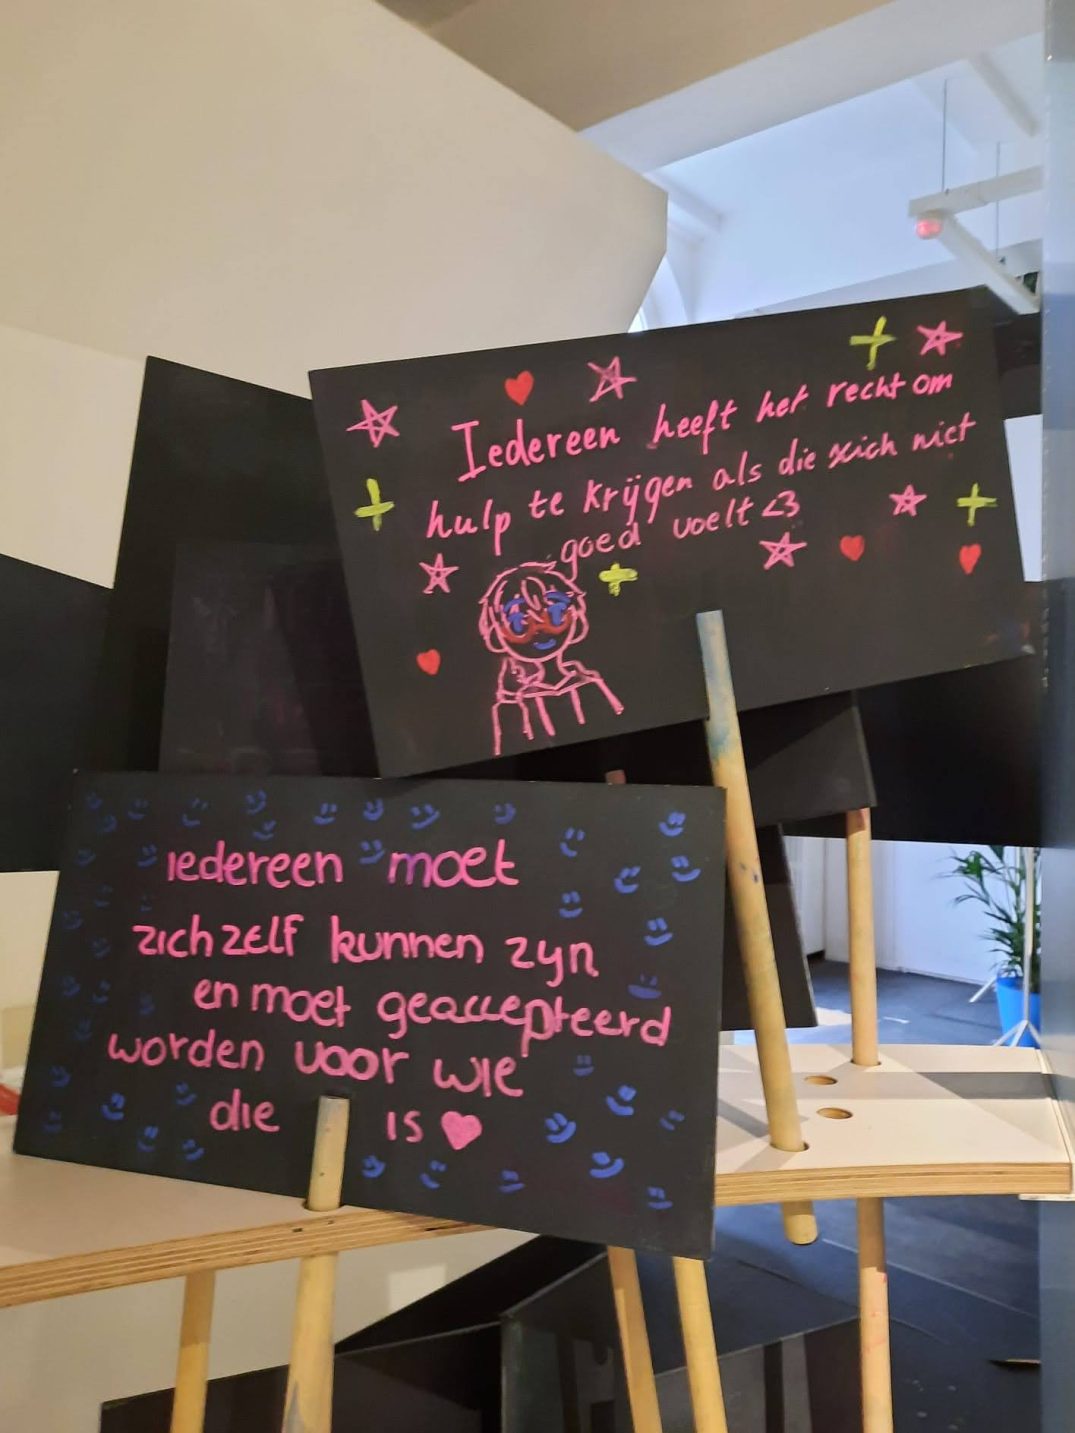 Iedereen heeft het recht om
hulp te krijgen als die zich niet
goed voelt <3
iedereen moet
zichzelf kunnen zyn
en moet geaccepteerd
worden voor wie
die is